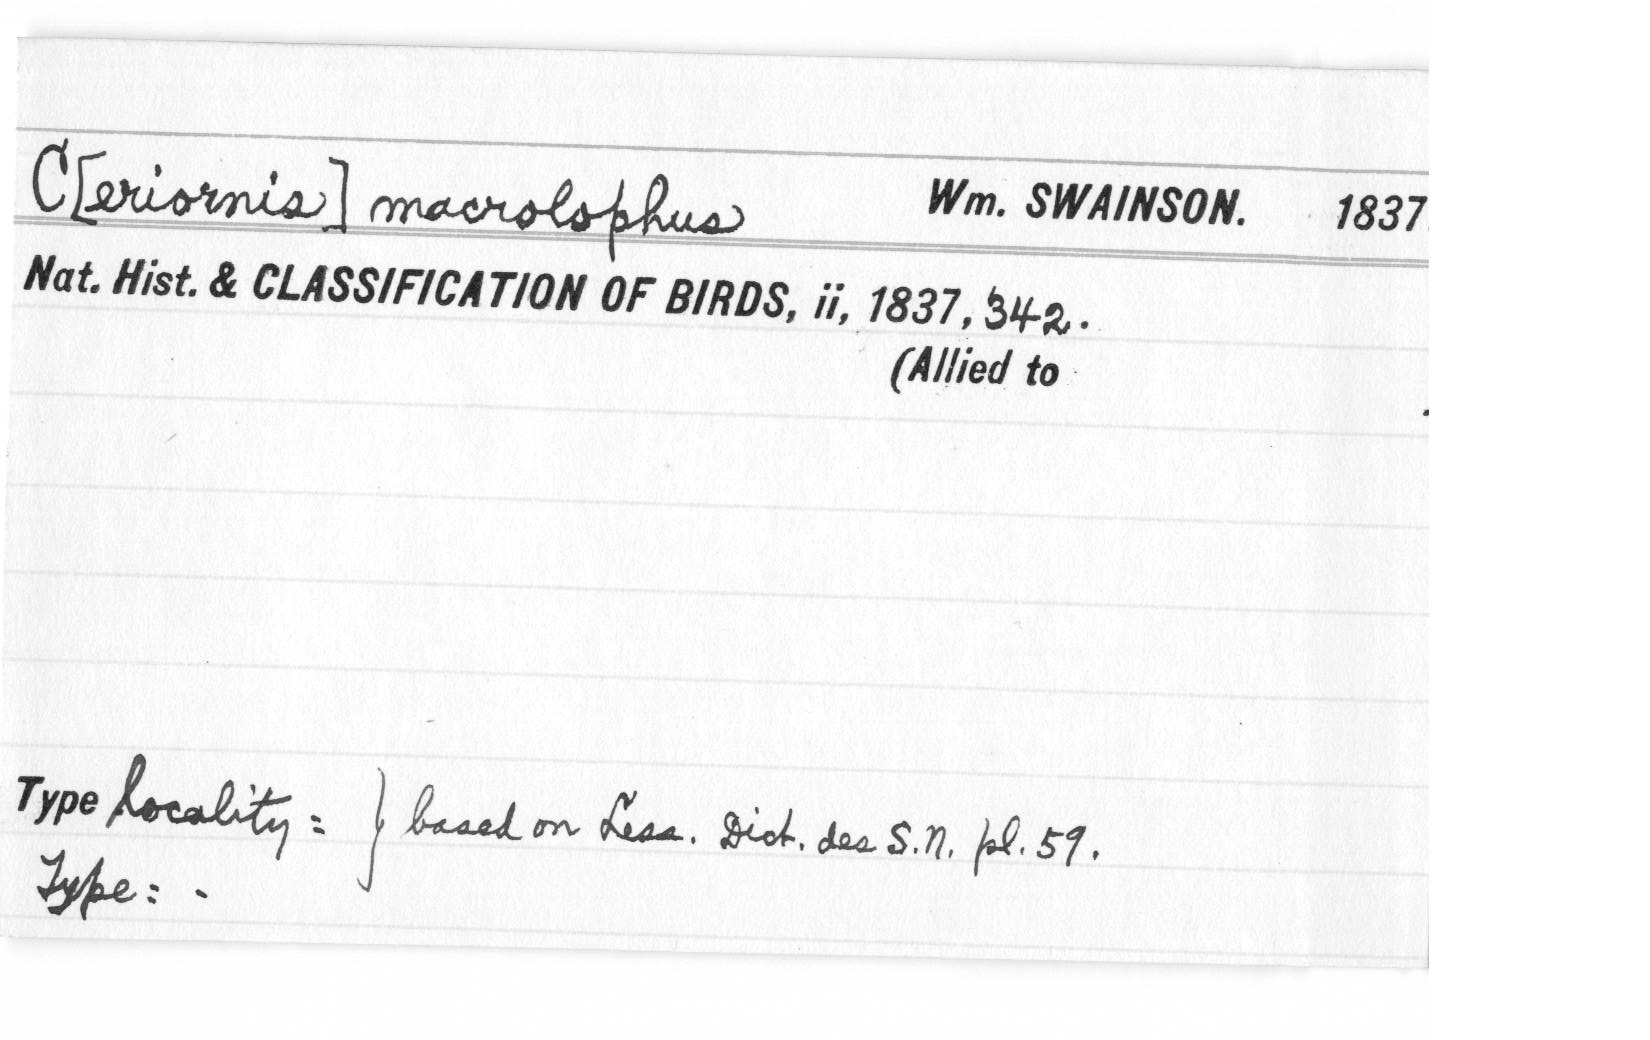 C[eriornis] macrolophus Wm. SWAINSON. 1837.
Nat. Hist. & CLASSIFICATION OF BIRDS, ii, 1837, 342.
(Allied to .
Type locality = } based on Less. Dict. des S.N. pl. 59.
Type: -